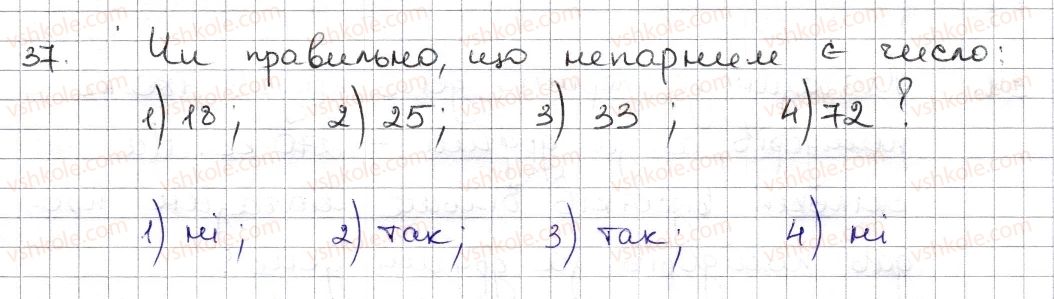 37. Чи правильно, що непарним є число:
1) 18; 2) 25; 3) 33; 4) 72?
1) ні; 2) так; 3) так; 4) ні
vshkole.com